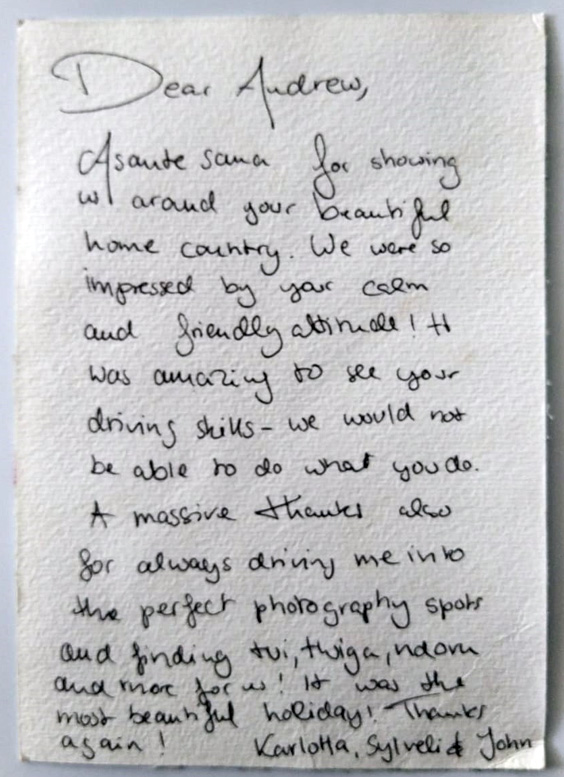 Dear Andrew,
Asante sana for showing
us around your beautiful
home country. We were so
impressed by your calm
and friendly attitude! It
was amazing to see your
driving skills - we would not
be able to do what you do.
A massive thanks also
for always driving me into
the perfect photography spots
and finding tui, twiga, ndovu
and more for us! It was the
most beautiful holiday! Thanks
again! Karlotta, Sylveli & John